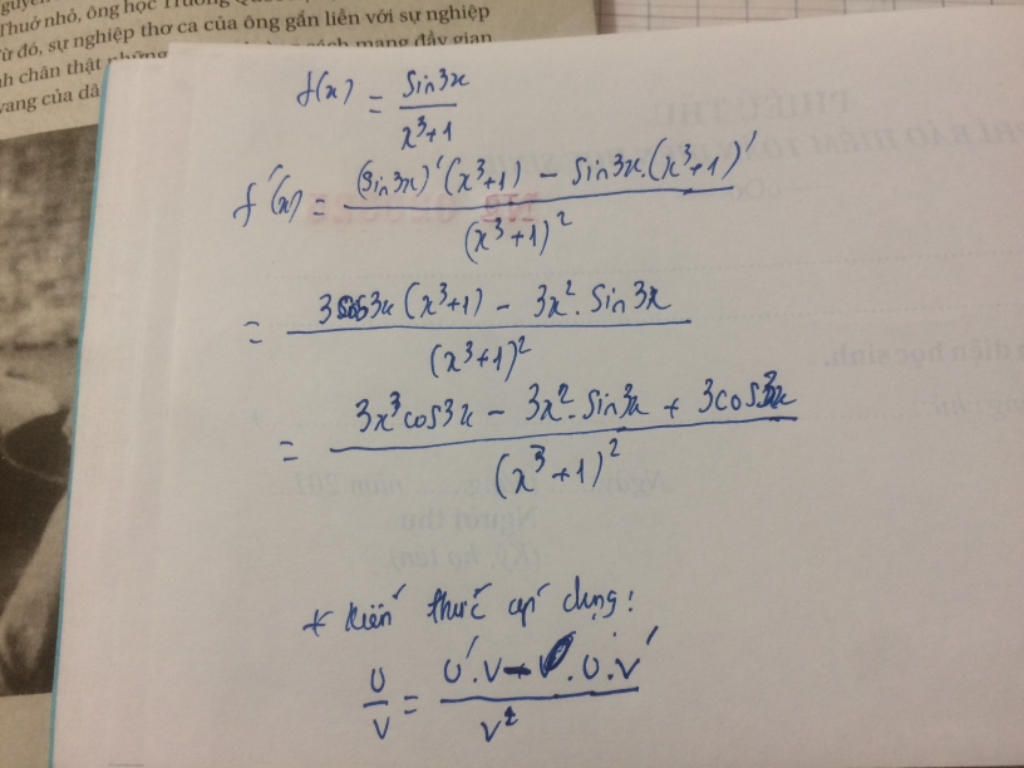 Thuở nhỏ, ông học
ừ đó, sự nghiệp thơ ca của ông gắn liền với sự nghiệp
h chân thật những cách mạng đầy gian
vang của dâ
f(x) = sin3x / x³+1
f'(x) = (sin3x)'(x³+1) - sin3x.(x³+1)' / (x³+1)²
= 3cos3x(x³+1) - 3x².sin3x / (x³+1)²
= 3x³cos3x - 3x².sin3x + 3cos3x / (x³+1)²
* kiến thức áp dụng:
U/V = U'.V - U.V' / V²